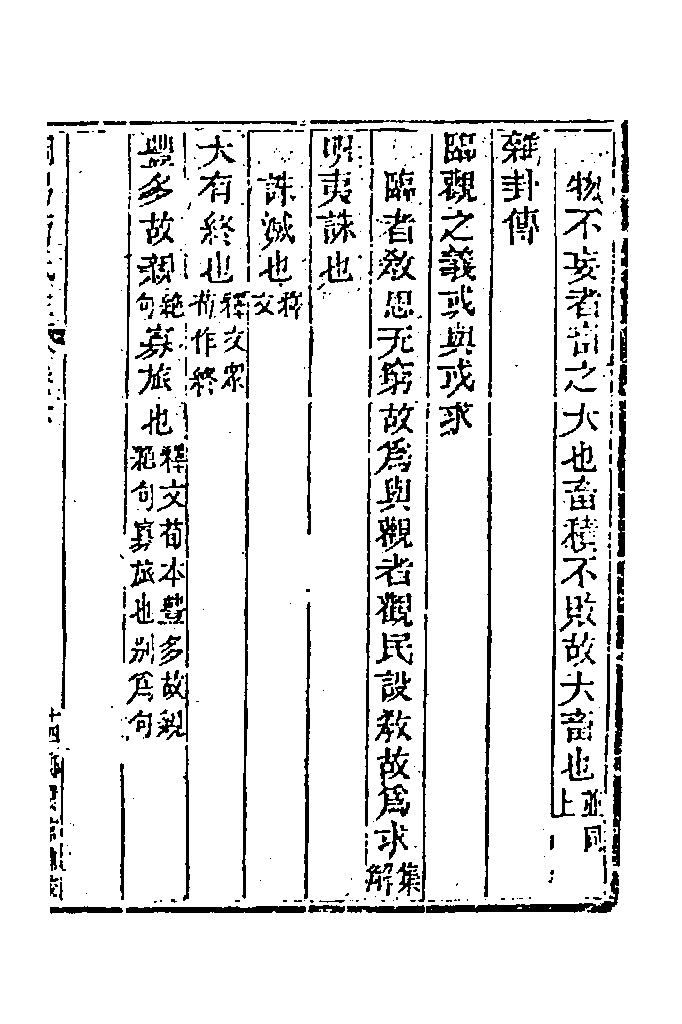 物不妄者畜之大也畜積不敗故大畜也並同上
雜卦傳
臨觀之義或與或求
臨者敎思无窮故爲與觀者觀民設教故爲求集解
明夷誅也
誅滅也釋文
大有終也釋文衆荀作終
豐多故親絶句寡旅也釋文荀本豐多故親絶句寡旅也别爲句
十四